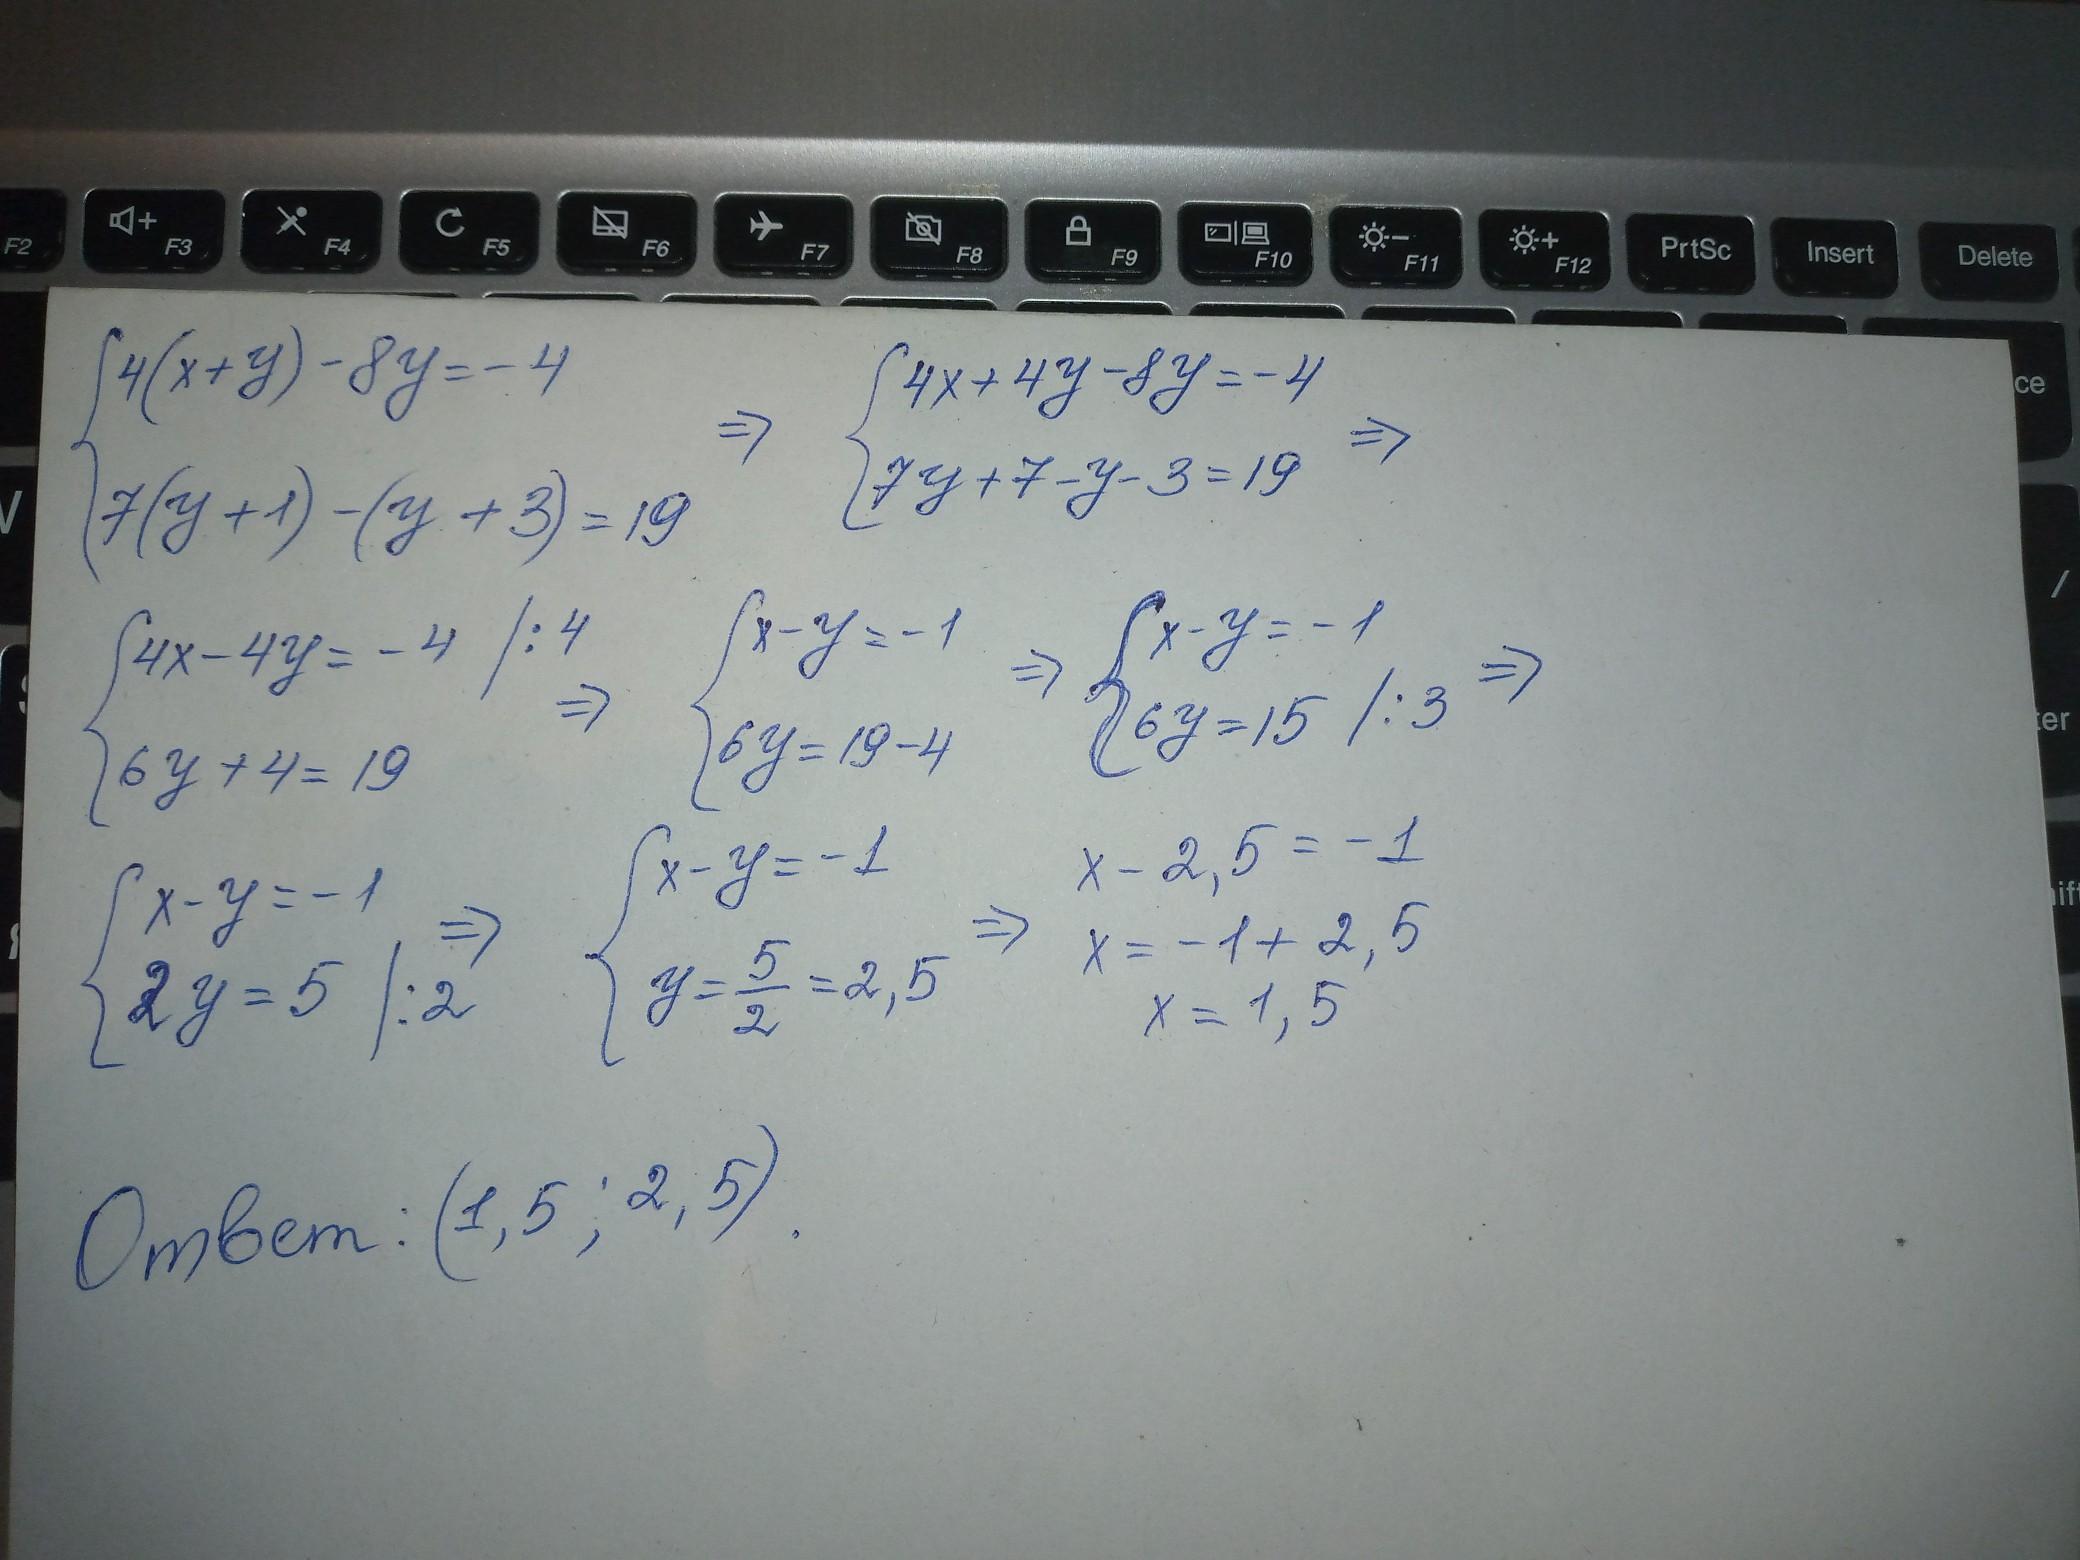 F2 F3 F4 F5 F6 F7 F8 F9 F10 F11 F12 PrtSc Insert Delete
{4(x+y)-8y=-4
{7(y+1)-(y+3)=19
⇒
{4x+4y-8y=-4
{7y+7-y-3=19
⇒
{4x-4y=-4 |:4
{6y+4=19
⇒
{x-y=-1
{6y=19-4
⇒
{x-y=-1
{6y=15 |:3
⇒
{x-y=-1
{2y=5 |:2
⇒
{x-y=-1
{y=5/2=2,5
⇒
x-2,5=-1
x=-1+2,5
x=1,5
Ответ: (1,5; 2,5).